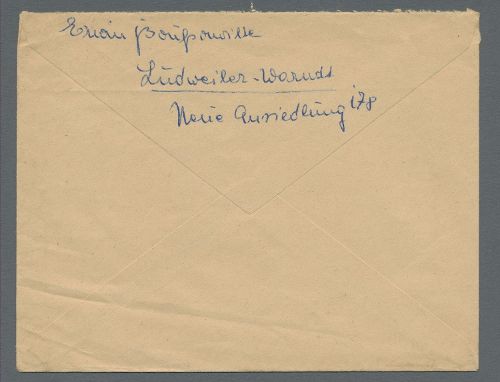 Erwin
Ludweiler-Warndt
Neue Ansiedlung 178